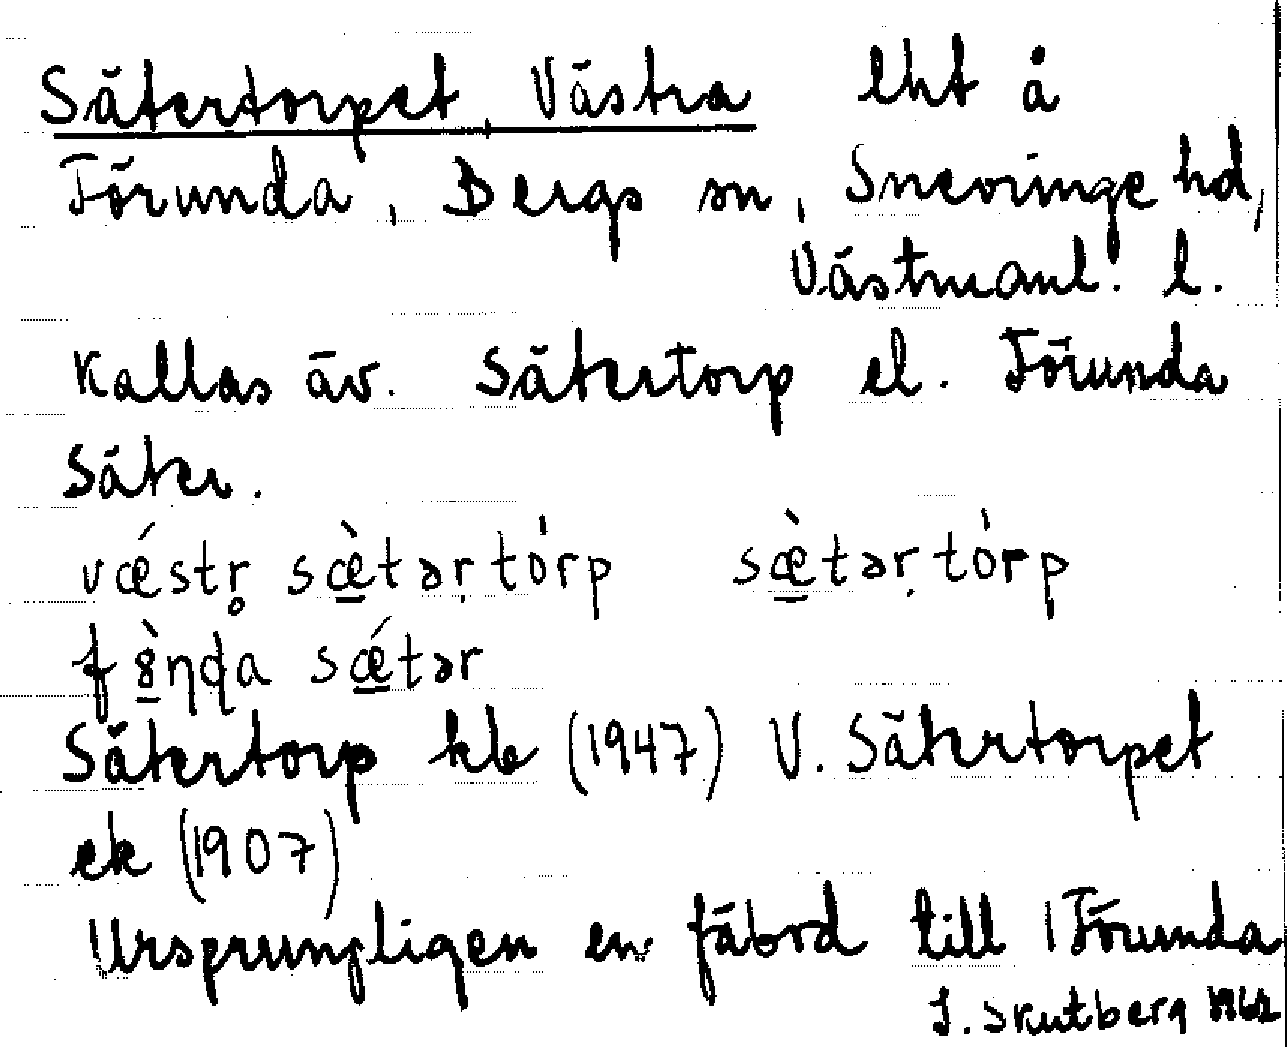 Sätertorpet, Västra lht å
Förunda, Bergs sn, Snevringe hd,
Västmanl. l.
Kallas äv. Sätertorp el. Förunda
Säter.
vǽstr̥ sæ̀tərtórp sæ̀tərtórp
sǽtər
Sätertorp kb (1947) V. Sätertorpet
ek (1907)
Ursprungligen en fäbod till Förunda
J. Skutberg 1962